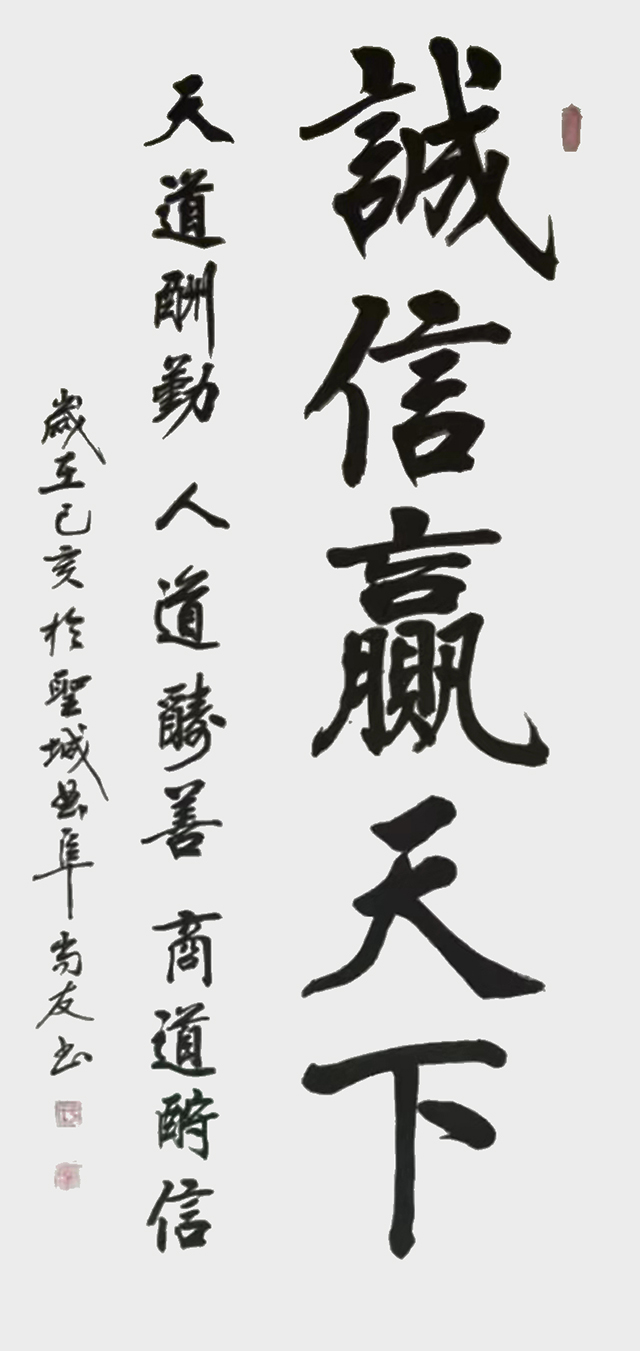 誠信贏天下
天道酬勤 人道醻善 商道酧信
歲在己亥於聖城曲阜尚友书